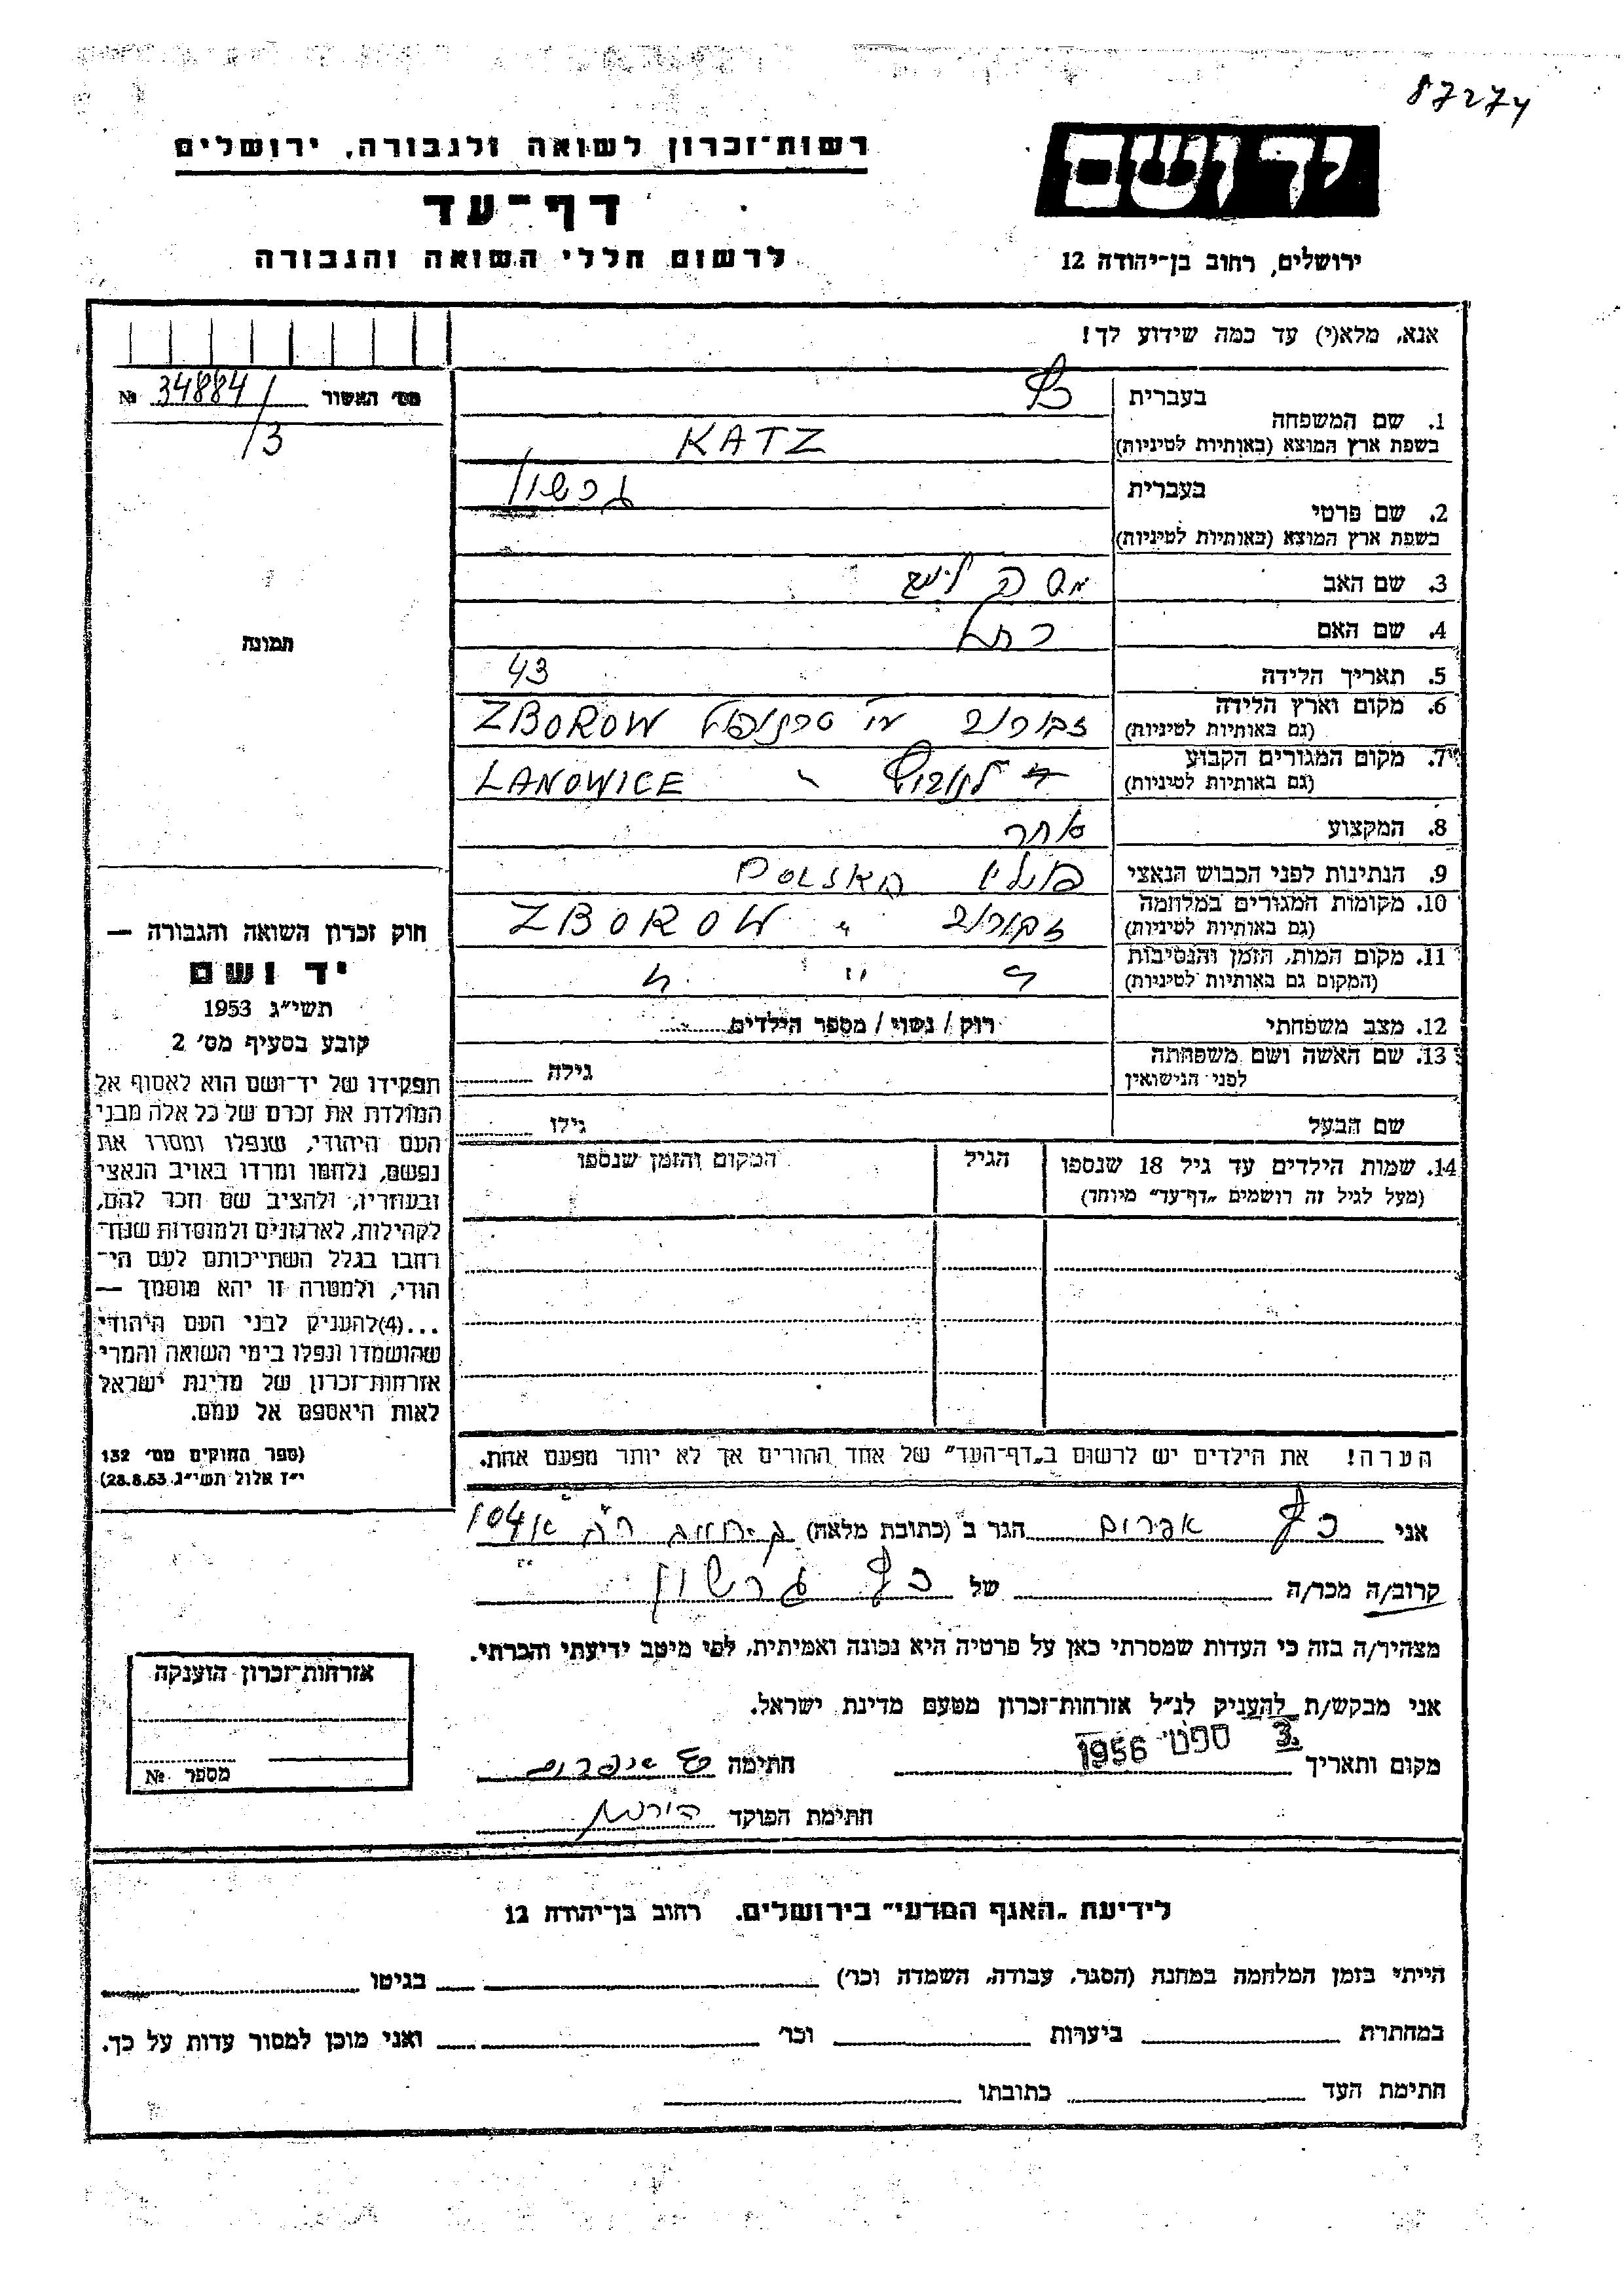 87274
רשות־זכרון לשואה ולגבורה, ירושלים
דף־עד
לרשום חללי השואה והגבורה
יד ושם
ירושלים, רחוב בן־יהודה 12
אנא, מלא(י) עד כמה שידוע לך!
מס׳ האשור 34884 №
/3
תמונה
1. שם המשפחה
בעברית כץ
בשפת ארץ המוצא (באותיות לטיניות) KATZ
2. שם פרטי
בעברית גרשון
בשפת ארץ המוצא (באותיות לטיניות)
3. שם האב משה
4. שם האם רחל
5. תאריך הלידה 43
6. מקום וארץ הלידה
(גם באותיות לטיניות) זבורוב טרנופול ZBOROW
7. מקום המגורים הקבוע
(גם באותיות לטיניות) LANOWICE
8. המקצוע סוחר
9. הנתינות לפני הכבוש הנאצי פולין POLSKA
10. מקומות המגורים במלחמה
(גם באותיות לטיניות) זבורוב " ZBOROW
11. מקום המות, הזמן והנסיבות
(המקום גם באותיות לטיניות) " " "
12. מצב משפחתי רוק / נשוי / מספר הילדים
13. שם האשה ושם משפחתה
לפני הנישואין גילה
שם הבעל גילו
14. שמות הילדים עד גיל 18 שנספו הגיל המקום והזמן שנספו
(מעל לגיל זה רושמים „דף־עד״ מיוחד)
הערה! את הילדים יש לרשום ב„דף־העד״ של אחד ההורים אך לא יותר מפעם אחת.
חוק זכרון השואה והגבורה —
יד ושם
תשי״ג 1953
קובע בסעיף מס׳ 2
תפקידו של יד־ושם הוא לאסוף אל
המולדת את זכרם של כל אלה מבני
העם היהודי, שנפלו ומסרו את
נפשם, נלחמו ומרדו באויב הנאצי
ובעוזריו, ולהציב שם וזכר להם,
לקהילות, לארגונים ולמוסדות שנח־
רבו בגלל השתייכותם לעם הי־
הודי, ולמטרה זו יהא מוסמך —
...(4)להעניק לבני העם היהודי
שהושמדו ונפלו בימי השואה והמרי
אזרחות־זכרון של מדינת ישראל
לאות היאספם אל עמם.
(ספר החוקים מס׳ 132
י״ז אלול תשי״ג 28.8.53)
אני כץ אפרים הגר ב (כתובת מלאה) 104
קרוב/ה מכר/ה של כץ גרשון
מצהיר/ה בזה כי העדות שמסרתי כאן על פרטיה היא נכונה ואמיתית, לפי מיטב ידיעתי והכרתי.
אני מבקש/ת להעניק לנ״ל אזרחות־זכרון מטעם מדינת ישראל.
מקום ותאריך 3. ספט׳ 1956 חתימה כץ אפרים
חתימת הפוקד
אזרחות־זכרון הוענקה
מספר №
לידיעת „האגף המדעי״ בירושלים, רחוב בן־יהודה 12
הייתי בזמן המלחמה במחנה (הסגר, עבודה, השמדה וכר׳) בגיטו
במחתרת ביערות וכר׳ ואני מוכן למסור עדות על כך.
חתימת העד כתובתו